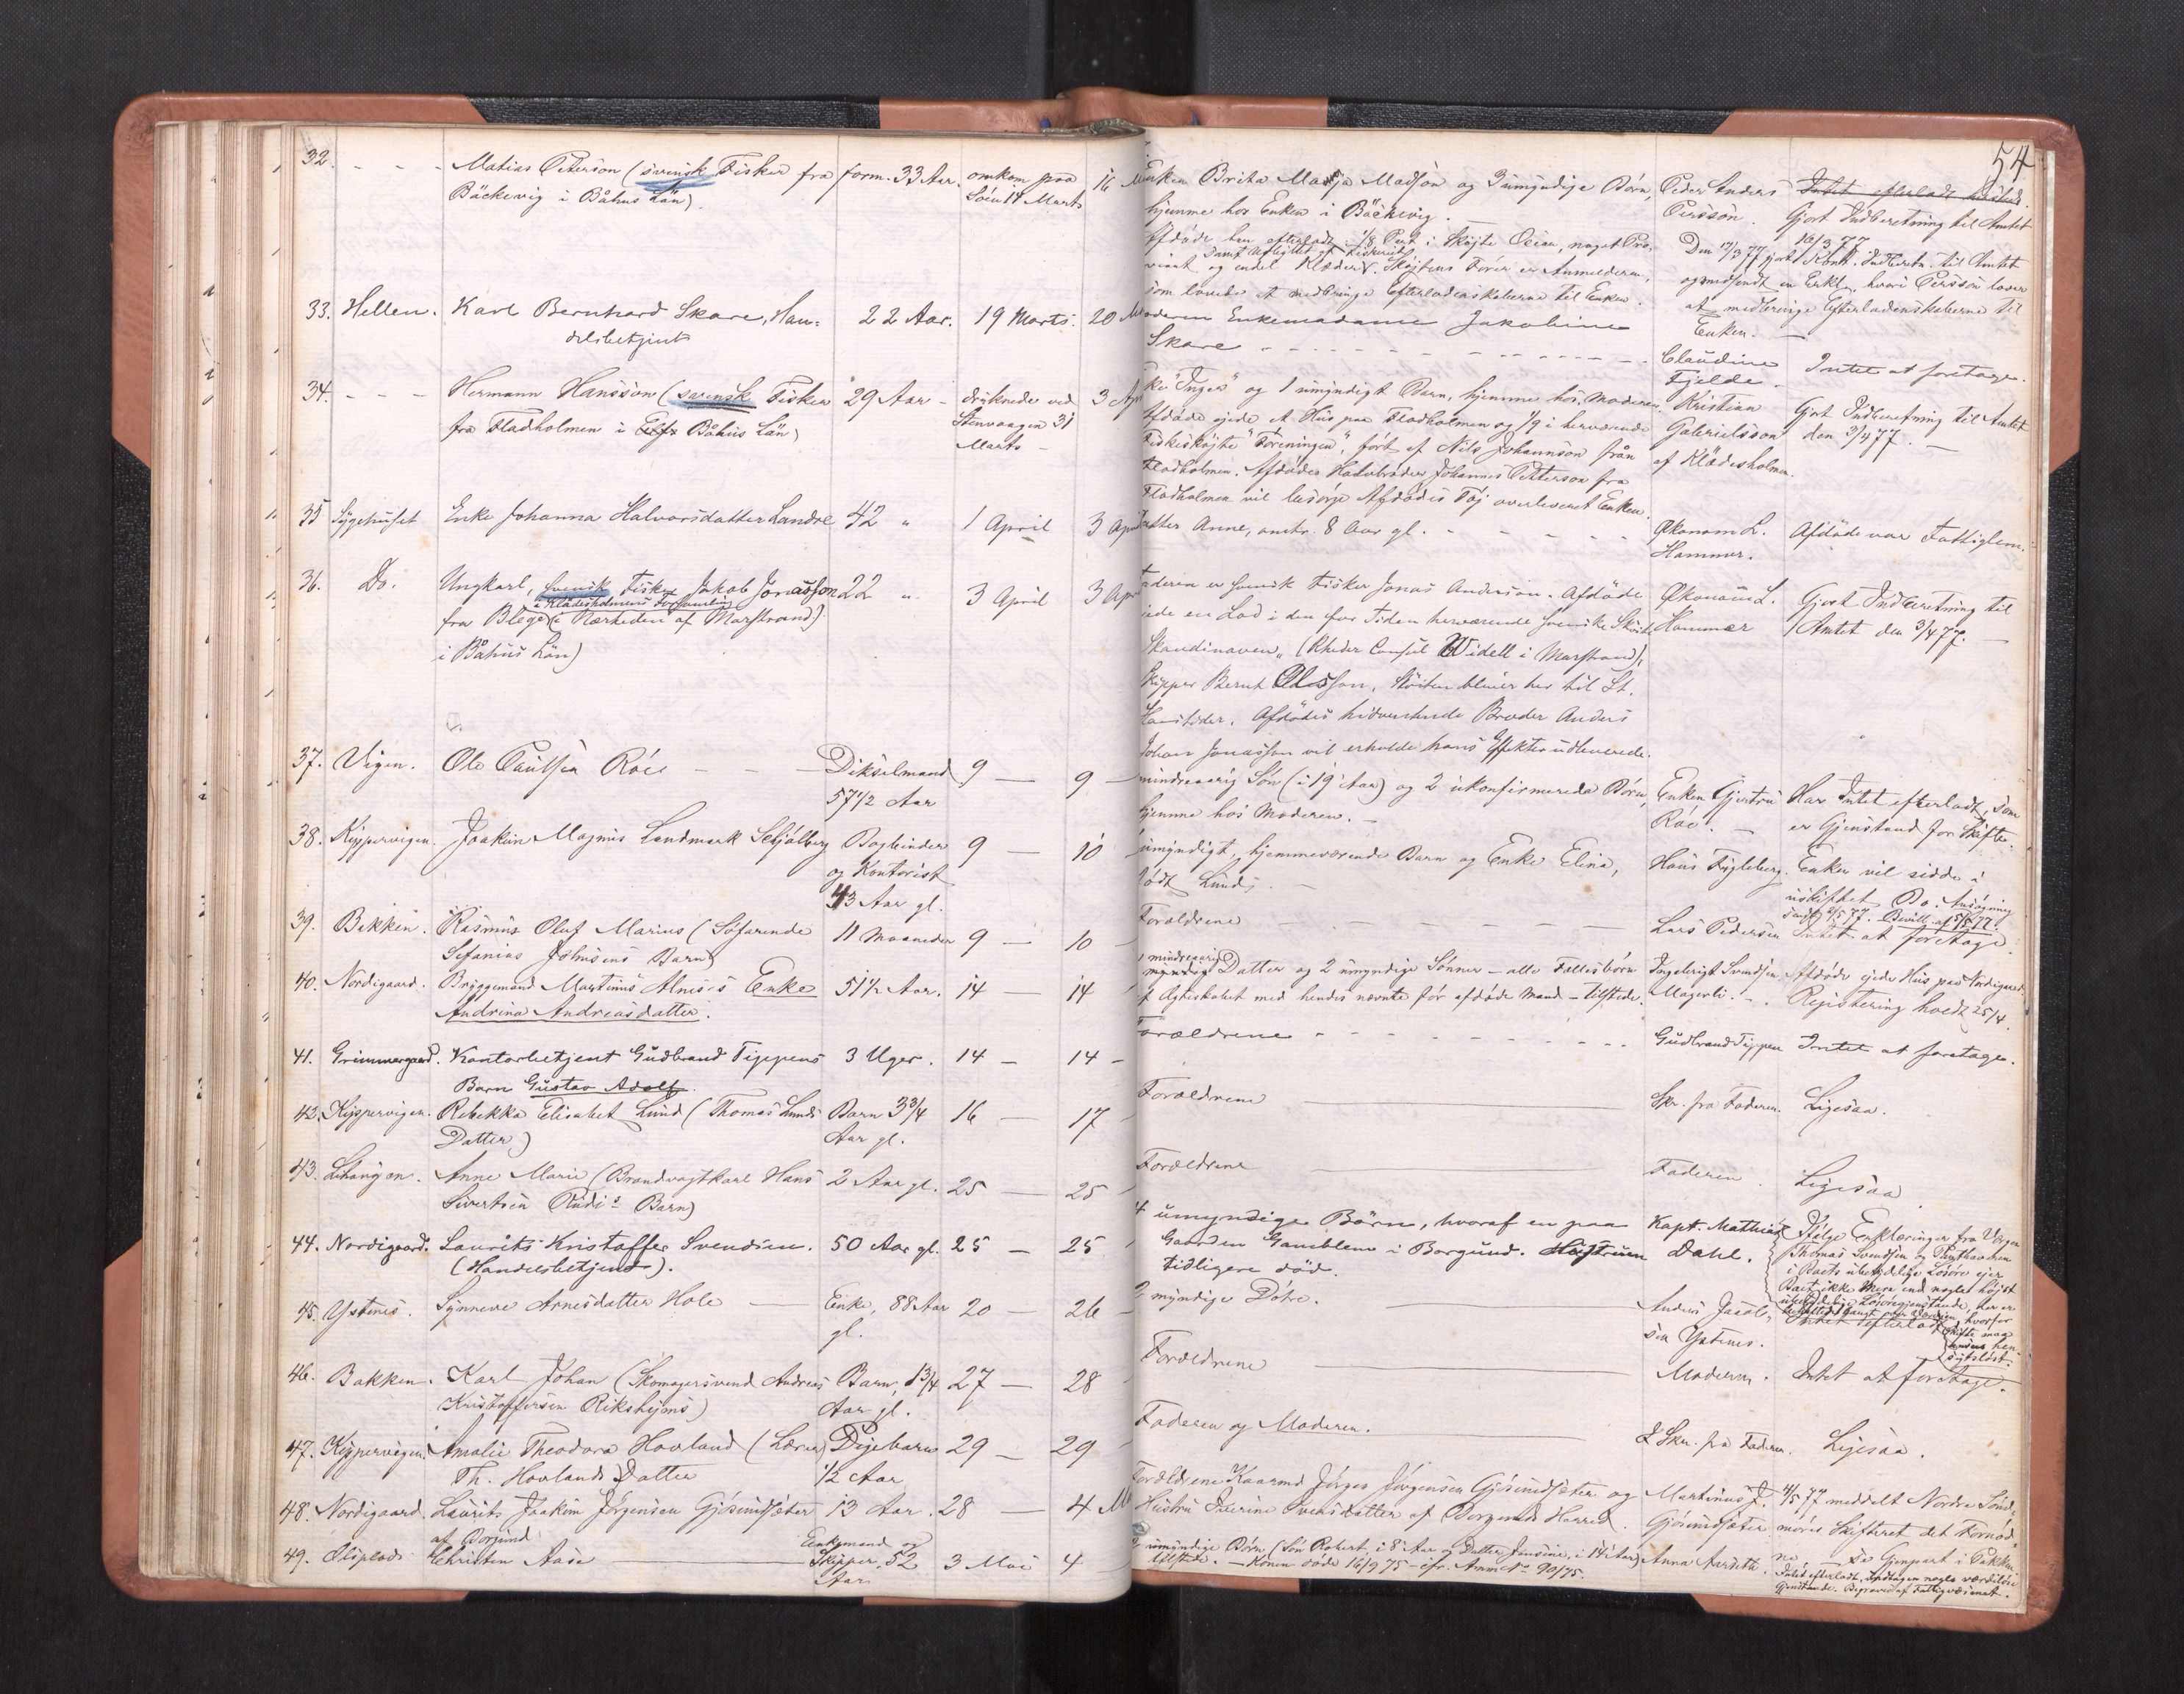 54
32. - - - Matias Peterson (svensk Fisker fra form. 33 Aar. omkom paa 16
Bäckevig i Båhus Län). Søen 14 Marts
Enken Brita Maja Madson og 3 umyndige Børn,
hjemme hos Enken i Bäckevig.
Afdøde har efterladt 1/8 Part i Skøjte Ocian, noget Pro-
samt Udbyttet af Fiskeriet
viant og endel Klæder. Skøjtens Fører er Anmelderen,
som lovede at medbringe Efterladenskaberne til Enken.
Peder Anders
Persson.
Intet efterladt
Gjort Indberetning til Amtet
16/3 77
Den 17/3 77 gjort Indberetn. til Amtet
og medsendt en Erkl., hvori Persson lover
at medbringe Efterladenskaberne til
Enken.
33. Hellen. Karl Bernhard Skare, Han- 22 Aar. 19 Marts. 20
delsbetjent
Moderen Enkemadame Jakobine
Skare
Claudine
Fjelde.
Intet at foretage.
34. - - - Hermann Hansson (svensk Fisker 29 Aar - druknede ved 3 Apr
fra Fladholmen i Båhus Län) Stenvaagen 31
Marts
"Inger" og 1 umyndigt Barn, hjemme hos Moderen.
Afdøde ejede et Hus paa Fladholmen og 1/9 i herværende
Fiskeskøjte "Föreningen", ført af Nils Johannson från
Fladholmen. Afdødes Halvbroder Johannes Petterson fra
Fladholmen vil besørge Afdødes Tøj overleveret Enken.
Kristian
Gabrielsson
af Klädesholmen.
Gjort Indberetning til Amtet
den 3/4 77.
35 Sygehuset Enke Johanna Halvorsdatter Landre 42 " 1 April 3 Apr
Datter Anne, omtr. 8 Aar gl.
Økonom L.
Hammer.
Afdøde var Fattiglem.
36. Do. Ungkarl, svensk Fisker Jakob Jonasson 22 " 3 April 3 Apr
i Klädesholmens Forsamling
fra Bleget (i Nærheden af Marstrand)
i Båhus Län)
Faderen er svensk Fisker Jonas Anderson. Afdøde
ejede en Lod i den for Tiden herværende svenske Skøite
Skandinaven, (Rheder Consul Widell i Marstrand),
Skipper Bernt Olsson, Skøiten bliver her til St.
Hanstider. Afdødes hidværende Broder Anders
Johan Jonasson vil erholde hans Effekter udleverede.
Økonom L.
Hammer
Gjort Indberetning til
Amtet den 3/4 77.
37. Vigen. Ole Paulsen Röe - - - Dikselmand 9 - 9 -
57 1/2 Aar
mindreaarig Søn (i 19 Aar) og 2 ukonfirmerede Børn,
hjemme hos Moderen.
Enken Gjertru
Röe.
Har Intet efterladt, som
er Gjenstand for Skifte.
38. Kippervigen. Joakim Magnus Landmark Schjølberg Bogbinder 9 - 10
og Kontorist
43 Aar gl.
umyndigt, hjemmeværende Barn og Enke Elina,
født Lund.
Hans Fygleberg.
Enken vil sidde i
uskiftet Bo. Ansøgning
39. Bakken. Rasmus Oluf Marius (Søfarende 11 Maaneder 9 - 10
Stefanias Johnsens Barn)
Forældrene
Lars Pedersen
Intet at foretage
40. Nordigaard. Bryggemand Martinus Alnes's Enke 51 1/2 Aar. 14 14
Andrina Andreasdatter.
1 mindreaarig
Datter og 2 umyndige Sønner - alle Fellesbørn
af Ægteskabet med hendes nævnte før afdøde Mand - tilstede.
Ingebrigt Svendsen
Magerli.
Afdøde ejede Hus paa Nordigaard.
Registering holdt 25/4.
41. Grimmergaard. Kontorbetjent Gudbrand Tippens 3 Uger. 14 - 14 -
Barn Gustav Adolf.
Forældrene
Gudbrand Tippen
Intet at foretage.
42. Kippervigen. Rebekka Elisabet Lund (Thomas Lunds Barn 3 3/4 16 - 17
Datter) Aar gl.
Forældrene
Skr. fra Faderen.
Ligesaa.
43. Lihaugen. Anne Marie (Brandvagtkarl Hans 2 Aar gl. 25 - 25
Sivertsen Rudi's Barn)
Forældrene
Faderen.
Ligesaa
44. Nordigaard. Laurits Kristoffer Svendsen. 50 Aar gl. 25 - 25
(Handelsbetjent).
4 umyndige Børn, hvoraf en paa
Gaarden Gamblem i Borgund. Hustruen
tidligere død.
Kapt. Mathias
Dahl.
Ifølge Erklæringer fra Værgen
Thomas Svendsen og Panthaveren
i Boets ubetydelige Løsøre ejer
Boet ikke mere end nogle højst
ubetydelige Løsøregjenstande,
45. Ystenes. Synneve Arnesdatter Hole Enke, 88 Aar 20 - 26
gl.
2 myndige Døtre.
Anders Jacob-
sen Ystenes.
Intet efterladt
46. Bakken. Karl Johan (Skomagersvend Andreas Barn, 1 3/4 27 - 28
Kristoffersen Rikshjems) Aar gl.
Forældrene
Moderen.
Intet at foretage.
47. Kippervigen. Amalie Theodora Hovland (Lærer Pigebarn 29 - 29
Th. Hovlands Datter 1/2 Aar
Faderen og Moderen.
Skr. fra Faderen.
Ligesaa.
48. Nordigaard. Laurits Joakim Jørgensen Gjøsundsæter 13 Aar. 28 - 4 M
af Borgund
Forældrene Kaarmd Jørgen Jørgensen Gjøsundsæter og
Hustru Iverine Svensdatter af Borgunds Herred.
Martinus J.
Gjøsundsæter
4/5 77 meddelt Nordre Sønd-
møres Skifteret det Fornød-
ne, - se Gjenpart i Pakken
49. Ølsplads Christen Aase Enkemand og 3 Mai 4
Skipper, 52
Aar
umyndige Børn (Søn Robert, i 8' Aar og Datter Jensine, i 14' Aar)
tilstede. - Konen døde 16/9 75 - cfr. Anm. No 90/75.
Anna
Intet efterladt, undtagen nogle værdiløse
Gjenstande. Begravet af Fattigvæsenet.